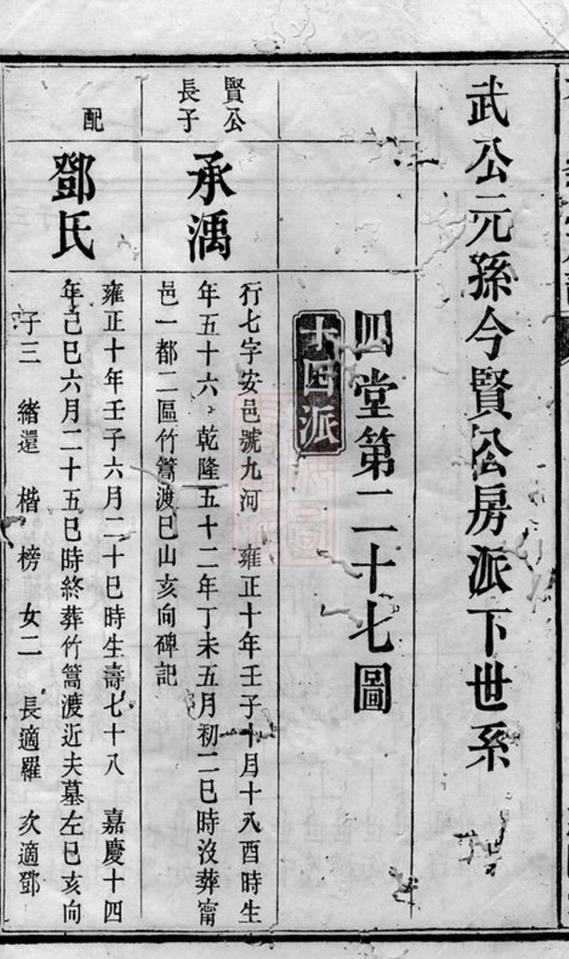 武公元孫今賢公房派下世系
四堂第二十七圖
十四派
賢公
長子
承澫
行七字安邑號九河 雍正十年壬子十月十八酉時生
年五十六 乾隆五十二年丁未五月初二巳時沒葬甯
邑一都二區竹篙渡巳山亥向碑記
配
鄧氏
雍正十年壬子六月二十巳時生壽七十八 嘉慶十四
年己巳六月二十五巳時終葬竹篙渡近夫墓左巳亥向
子三 緒還 楷 榜 女二 長適羅 次適鄧